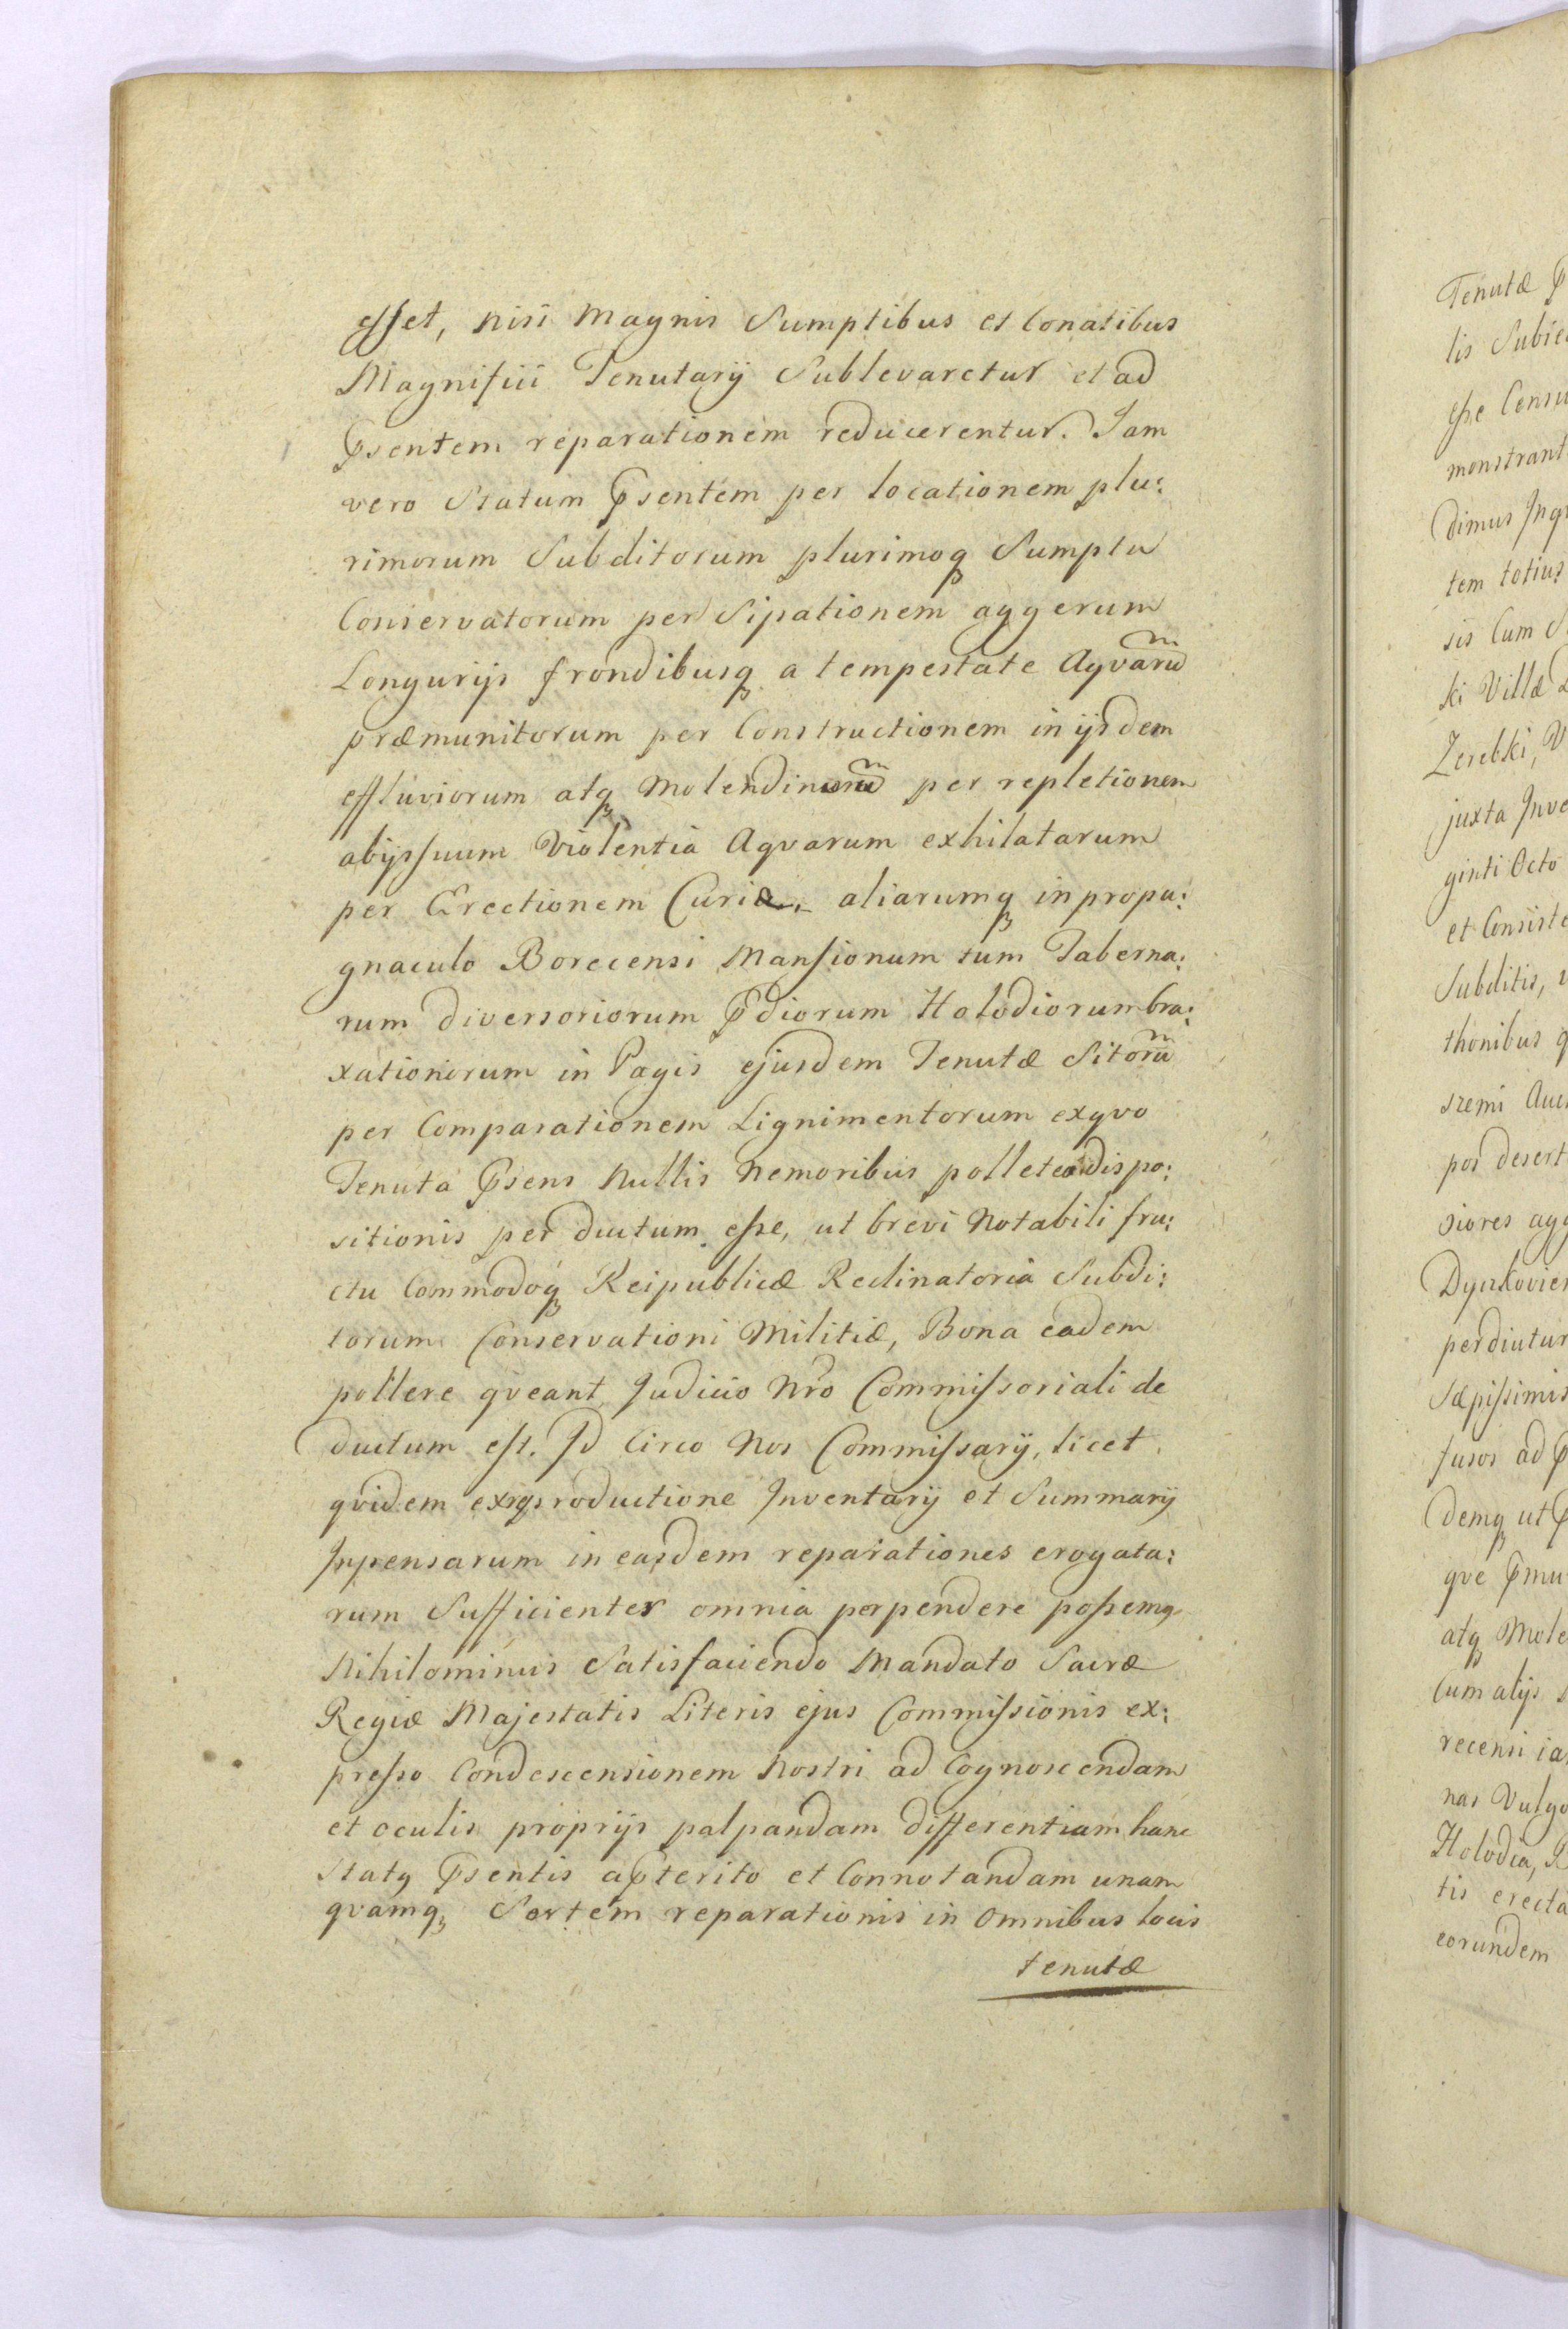 esset, nisi Magnis Sumptibus et Conatibus
Magnifici Tenutarij Sublevaretur et ad
p̄sentem reparationem reducerentur. Jam
vero Statum p̄sentem per locationem plu:
rimorum Subditorum plurimoq̨ Sumptu
Conservatorum per Sipationem aggerum
Longurijs frondibusq̨ a tempestate Aqvarū
præmunitorum per Constructionem in ijsdem
effluviorum atq̨ Molendinorū per repletionem
abijssuum Violentia Aqvarum exhilatarum
per Erectionem Curiæ, aliarumq̨ in propu:
gnaculo Borecensi Mansionum tum Taberna:
rum diversoriorum p̄diorum Holodiorum bra:
xationiorum in Pagis ejusdem Tenutæ Sitorū
per Comparationem Lignimentorum exqvo
Tenuta p̄sens Nullis Nemoribus pollet eo dispo:
sitionis per ductum esse, ut brevi Notabili fru:
ctu Commodoq̨ Reipublicæ Reclinatoria Subdi:
torum Conservationi Militiæ, Bona eadem
pollere qveant, Judicio Nr̄o Commissoriali de
ductum est. Id Circo Nos Commissarij, licet
qvidem ex productione Inventarij et Summarij
Inpensarum in easdem reparationes erogata:
rum Sufficienter omnia perpendere possemq
Nihilominus Satisfaciendo Mandato Sacræ
Regiæ Majestatis Literis ejus Commissionis ex:
presso Condescensionem Nostri ad Cognoscendam
et oculis proprijs palpandam differentiam hanc
Statq p̄sentis a p̄terito et Connotandam unam
qvamq̨ Sortem reparationis in Omnibus locis
tenutæ
Tenutæ
lis
esse
monstrant
dimus
tem totius
sis Cum
ki Villæ
Zerebki,
juxta
ginti Octo
et
Subditis,
thonibus
sremi
pos desert
siores
perdiutur
Sæpissimis
fusos ad
demq̨ ut
qve
atq̨
Cum alijs
recensi
nas Vulgo
Holodia,
tis erecta
eorundem